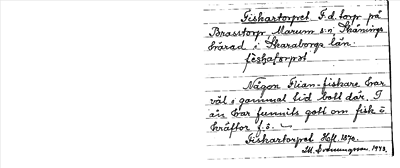 Fiskartorpet F.d. torp på
Brasstorp, Marum s:n, Skånings
härad i Skaraborgs län.
feskaforpet
Någon Flian-fiskare har
väl i gammal tid bott där. I
ån har funnits gott om fisk o.
kräftor f.ö.
Fiskartorpet Hfl. 1870.
1943.